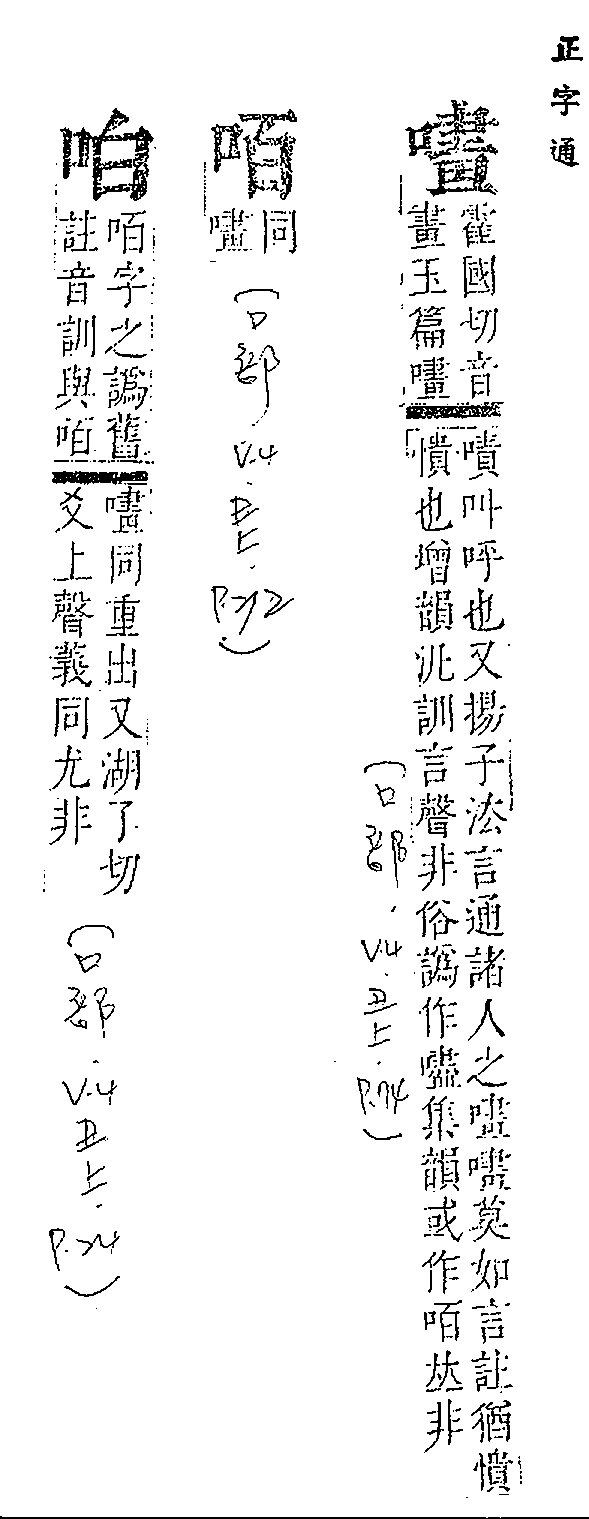 正字通
霍國切音
畫玉篇
嘖叫呼也又揚子法言通諸人之莫如言註猶憒
憒也增韻汎訓言聲非俗譌作嚍集韻或作咟𠀤非
(口部.V.4.丑上.P.74)
咟
同
(口部.V.4.丑上.P.32)
咟字之譌舊
註音訓與咟
同重出又湖了切
爻上聲義同尤非
(口部.V.4.丑上.P.24)